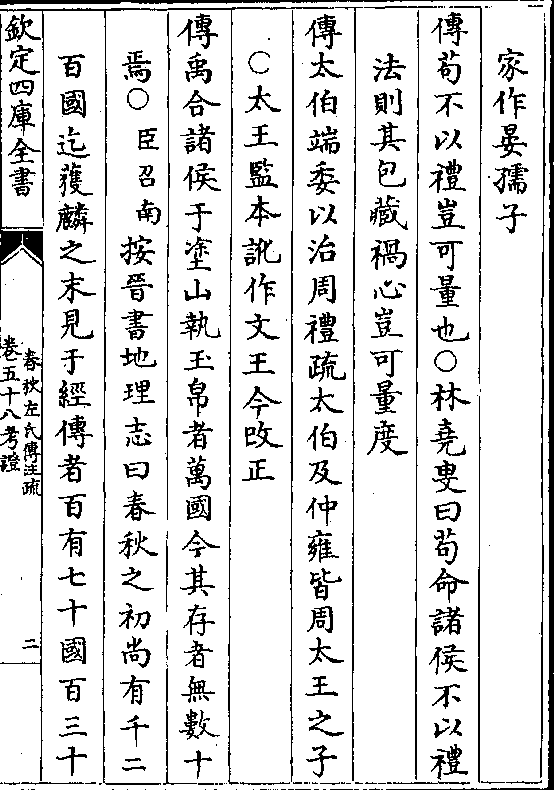 家作晏孺子
傳苟不以禮豈可量也○林堯叟曰苟命諸侯不以禮
法則其包藏禍心豈可量度
傳太伯端委以治周禮疏太伯及仲雍皆周太王之子
○太王監本訛作文王今改正
傳禹合諸侯于塗山執玉帛者萬國今其存者無數十
焉○臣召南按晉書地理志曰春秋之初尚有千二
百國迄獲麟之末見于經傳者百有七十國百三十
欽定四庫全書
春秋左氏傳注疏
卷五十八考證
二